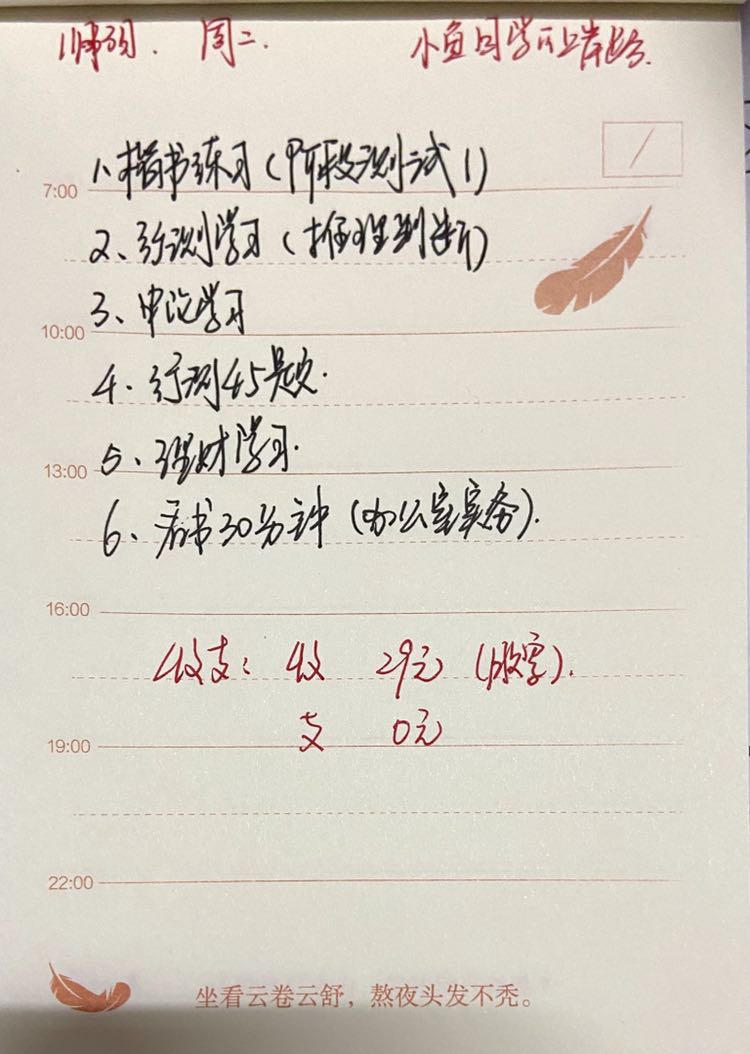 周二. 小鱼同学的上岸路.
1、楷书练习(阶段测试1)
7:00
2、行测学习(推理判断)
3、申论学习
10:00
4、行测45题.
5、理财学习.
13:00
6、看书30分钟(办公室实务).
16:00
收支: 收 29元
支 0元
19:00
22:00
坐看云卷云舒，熬夜头发不秃。